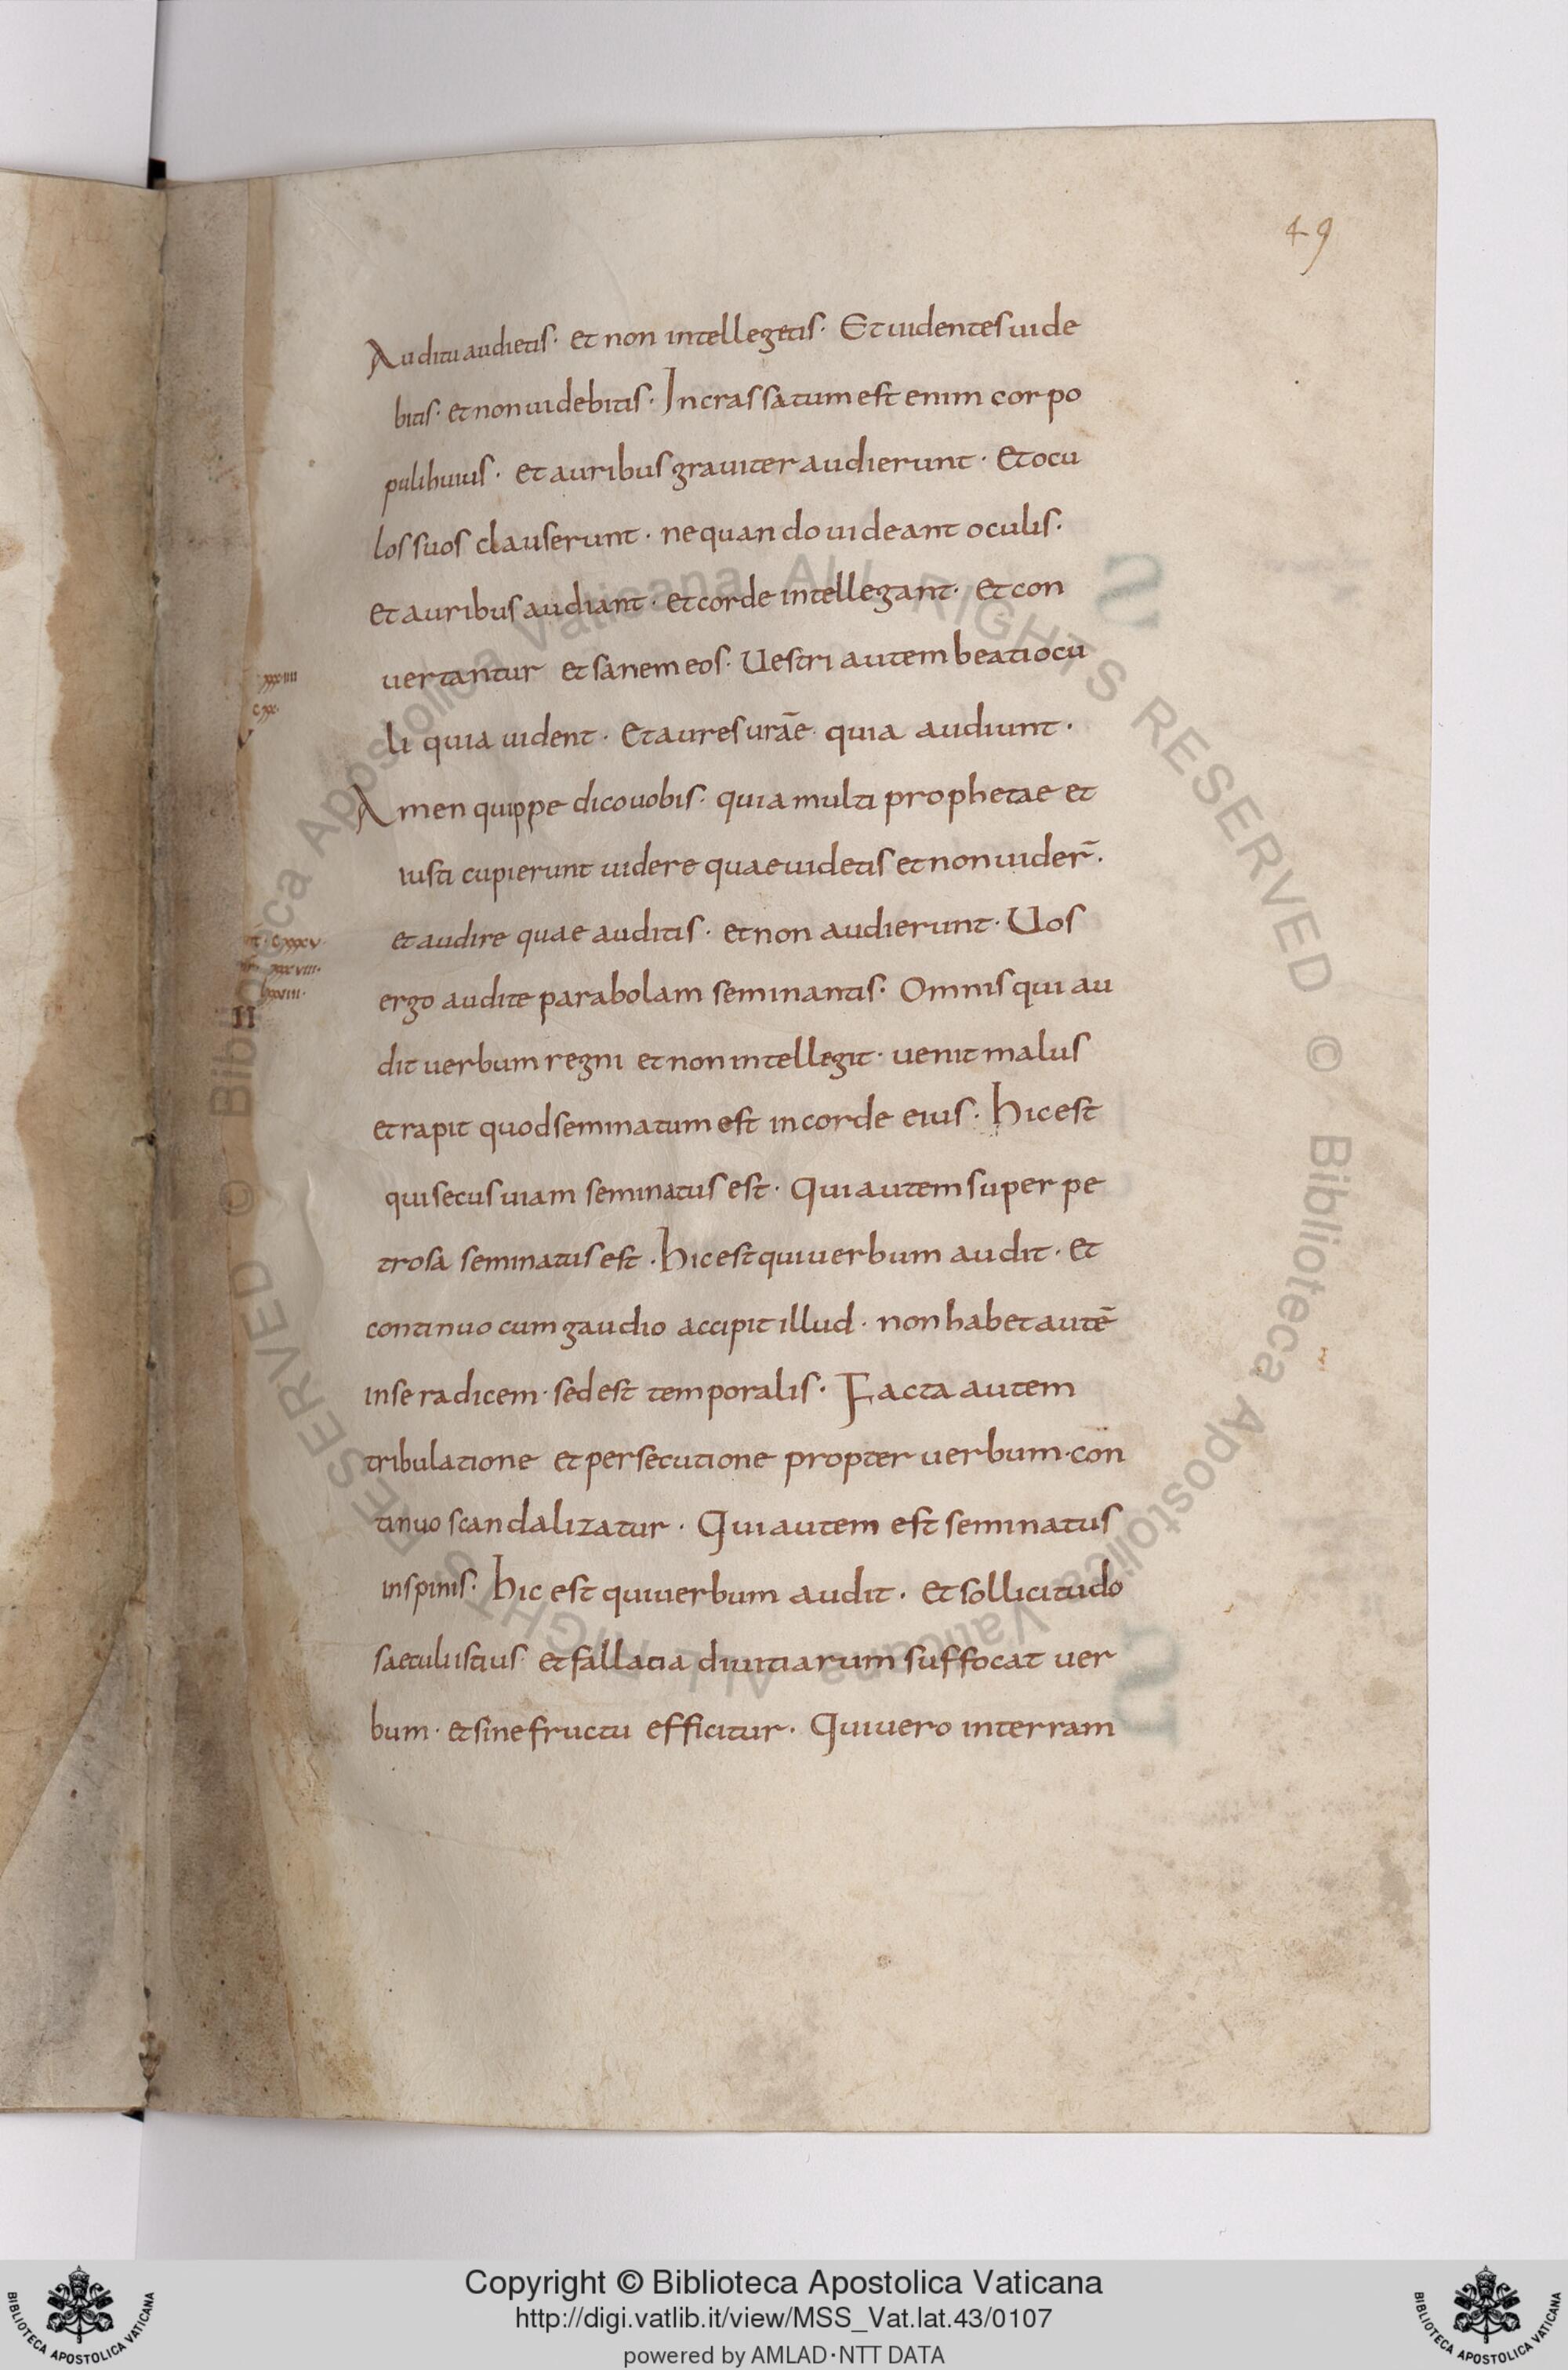 49
Auditu audietis· et non intellegetis· Et uidentes uide
bitis· et non uidebitis· Incrassatum est enim cor po
puli huius· et auribus grauiter audierunt· Et ocu
los suos clauserunt· ne quando uideant oculis·
et auribus audiant· et corde intellegant· et con
uertantur et sanem eos· Uestri autem beati ocu
li quia uident· Et aures urāe quia audiunt·
Amen quippe dico uobis· quia multi prophetae et
iusti cupierunt uidere quae uidetis et non uider̄·
et audire quae auditis· et non audierunt· Uos
ergo audite parabolam seminantis· Omnis qui au
dit uerbum regni et non intellegit· uenit malus
et rapit quod seminatum est in corde eius· Hic est
qui secus uiam seminatus est· Qui autem super pe
trosa seminatus est· Hic est qui uerbum audit· et
continuo cum gaudio accipit illud· non habet autē
in se radicem· sed est temporalis· Facta autem
tribulatione et persecutione propter uerbum· con
tinuo scandalizatur· Qui autem est seminatus
in spinis· Hic est qui uerbum audit· et sollicitudo
saeculi istius et fallacia diuitiarum suffocat uer
bum· et sine fructu efficitur· Qui uero in terram
Copyright © Biblioteca Apostolica Vaticana
http://digi.vatlib.it/view/MSS_Vat.lat.43/0107
powered by AMLAD·NTT DATA
BIBLIOTECA APOSTOLICA VATICANA
BIBLIOTECA APOSTOLICA VATICANA
© Biblioteca Apostolica Vaticana ALL RIGHTS RESERVED © Biblioteca Apostolica Vaticana ALL RIGHTS RESERVED